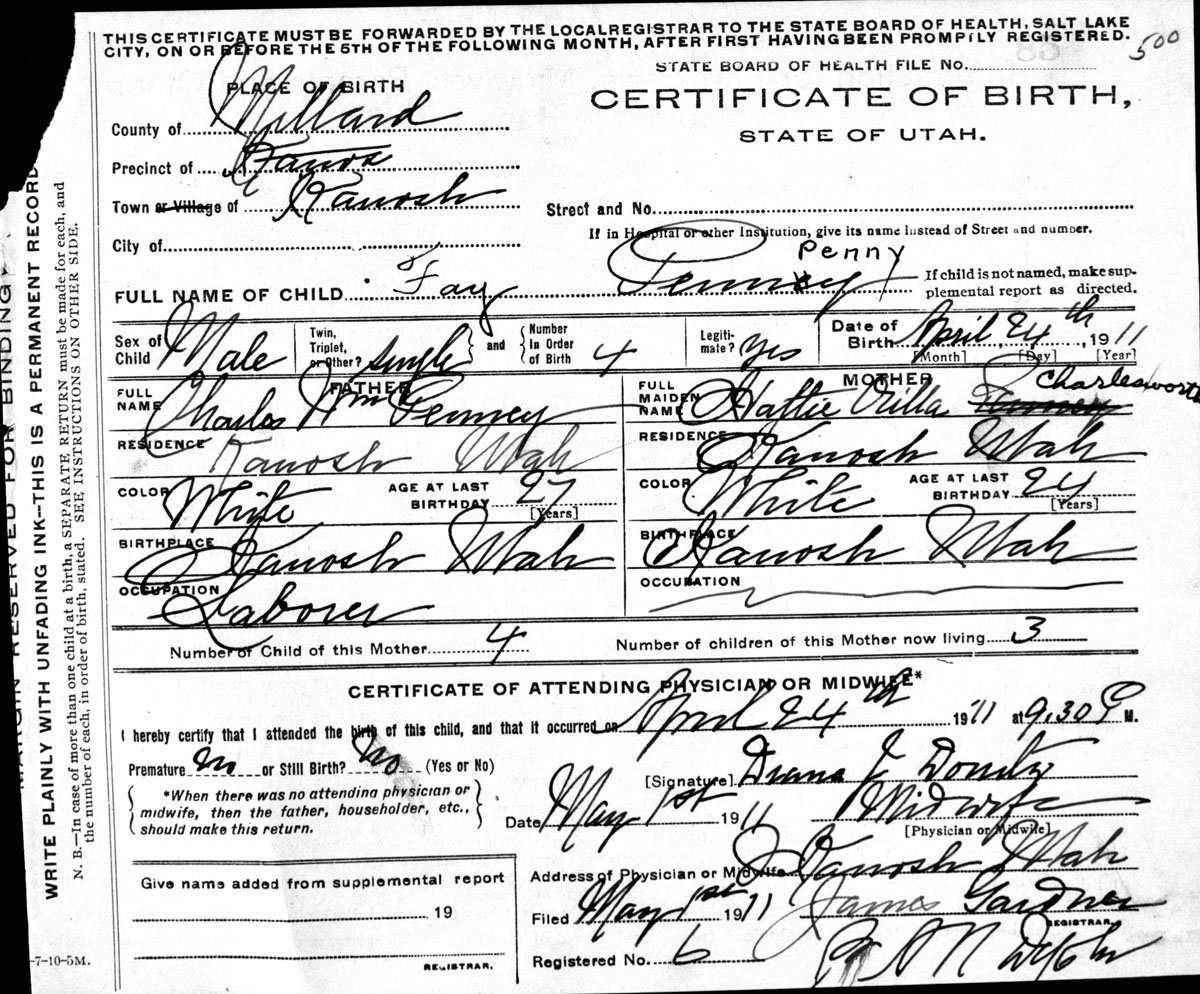 THIS CERTIFICATE MUST BE FORWARDED BY THE LOCAL REGISTRAR TO THE STATE BOARD OF HEALTH, SALT LAKE
CITY, ON OR BEFORE THE 5TH OF THE FOLLOWING MONTH, AFTER FIRST HAVING BEEN PROMPTLY REGISTERED.
500
STATE BOARD OF HEALTH FILE NO.
PLACE OF BIRTH
CERTIFICATE OF BIRTH,
STATE OF UTAH.
County of Millard
Precinct of
Town or Village of Kanosh
Street and No.
If in Hospital or other Institution, give its name instead of Street and number.
City of
Penny
FULL NAME OF CHILD Fay Penney
If child is not named, make sup-
plemental report as directed.
Sex of Child Male
Twin, Triplet, or Other? single and Number In Order of Birth 4
Legiti-mate? yes
Date of Birth April 24th, 1911
[Month] [Day] [Year]
FATHER
FULL NAME Charles Wm Penney
RESIDENCE Kanosh Utah
COLOR White AGE AT LAST BIRTHDAY 27
[Years]
BIRTHPLACE Kanosh Utah
OCCUPATION Laborer
MOTHER
Charlesworth
FULL MAIDEN NAME Hattie Orilla Penney
RESIDENCE Kanosh Utah
COLOR White AGE AT LAST BIRTHDAY 24
[Years]
BIRTHPLACE Kanosh Utah
OCCUPATION
Number of Child of this Mother 4 Number of children of this Mother now living 3
CERTIFICATE OF ATTENDING PHYSICIAN OR MIDWIFE*
I hereby certify that I attended the birth of this child, and that it occurred on April 24th 1911 at 9.30 P M.
Premature No or Still Birth? No (Yes or No)
[Signature]
*When there was no attending physician or
midwife, then the father, householder, etc.,
should make this return.
Date May 1st 1911 Midwife
[Physician or Midwife]
Address of Physician or Midwife Kanosh Utah
Give name added from supplemental report
19
REGISTRAR.
Filed May 1st 1911 James Gardner
REGISTRAR.
Registered No. 6
-7-10-5M.
MARGIN RESERVED FOR BINDING
WRITE PLAINLY WITH UNFADING INK--THIS IS A PERMANENT RECORD
N. B.--In case of more than one child at a birth, a SEPARATE RETURN must be made for each, and
the number of each, in order of birth, stated. SEE INSTRUCTIONS ON OTHER SIDE.